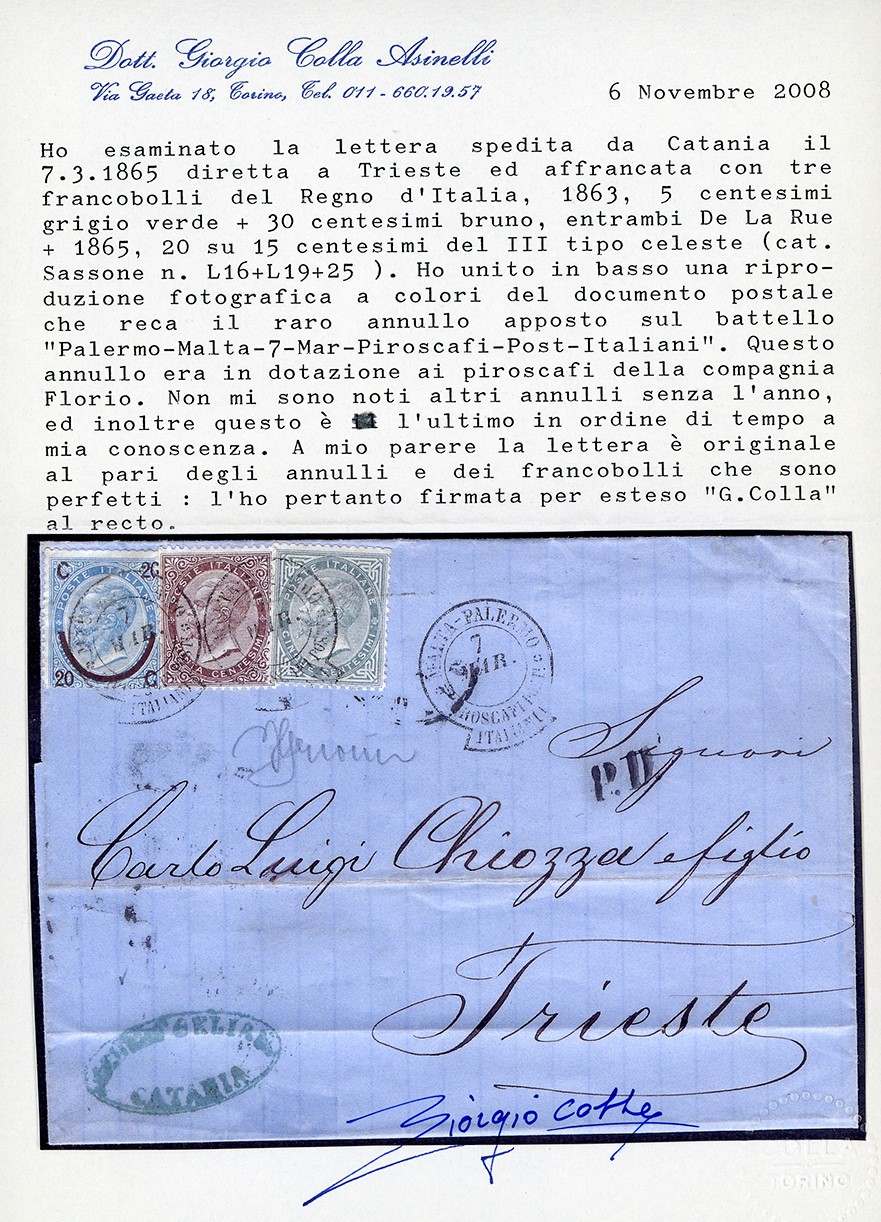 Dott. Giorgio Colla Asinelli
Via Gaeta 18, Torino, Tel. 011 - 660.19.57
6 Novembre 2008
Ho esaminato la lettera spedita da Catania il
7.3.1865 diretta a Trieste ed affrancata con tre
francobolli del Regno d'Italia, 1863, 5 centesimi
grigio verde + 30 centesimi bruno, entrambi De La Rue
+ 1865, 20 su 15 centesimi del III tipo celeste (cat.
Sassone n. L16+L19+25 ). Ho unito in basso una ripro-
duzione fotografica a colori del documento postale
che reca il raro annullo apposto sul battello
"Palermo-Malta-7-Mar-Piroscafi-Post-Italiani". Questo
annullo era in dotazione ai piroscafi della compagnia
Florio. Non mi sono noti altri annulli senza l'anno,
ed inoltre questo è l'ultimo in ordine di tempo a
mia conoscenza. A mio parere la lettera è originale
al pari degli annulli e dei francobolli che sono
perfetti : l'ho pertanto firmata per esteso "G.Colla"
al recto.
C 20
POSTE ITALIANE
20 C
POSTE ITALIANE
CENTESIMI
POSTE ITALIANE
7
MAR.
ITALIANI
MALTA-PALERMO
7
MAR.
PIROSCAFI
ITALIANI
Signori
P.D
Carlo Luigi Chiozza e figlio
Trieste
CATANIA
Giorgio Colla
COLLA
TORINO